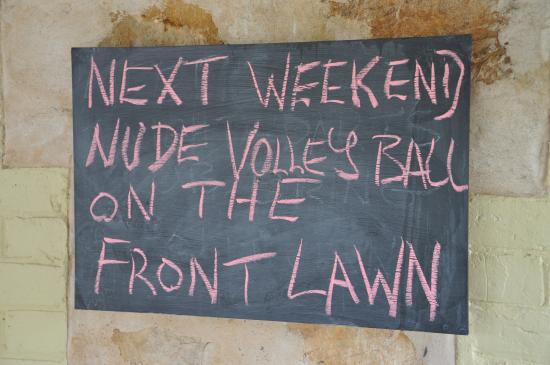 NEXT WEEKEND
NUDE VOLLEY BALL
ON THE
FRONT LAWN